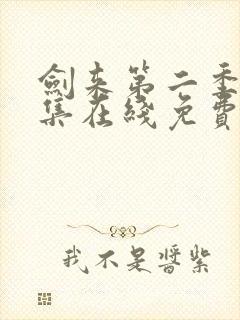 劍来第二季
集在綫免費
我不是醬紫